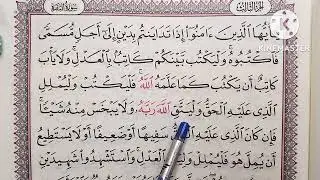 الجزء الثالث
سورة البقرة
KINEMASTER
يَٰٓأَيُّهَا ٱلَّذِينَ ءَامَنُوٓا۟ إِذَا تَدَايَنتُم بِدَيْنٍ إِلَىٰٓ أَجَلٍ مُّسَمًّى
فَٱكْتُبُوهُ ۚ وَلْيَكْتُب بَّيْنَكُمْ كَاتِبٌۢ بِٱلْعَدْلِ ۚ وَلَا يَأْبَ
كَاتِبٌ أَن يَكْتُبَ كَمَا عَلَّمَهُ ٱللَّهُ ۚ فَلْيَكْتُبْ وَلْيُمْلِلِ
ٱلَّذِى عَلَيْهِ ٱلْحَقُّ وَلْيَتَّقِ ٱللَّهَ رَبَّهُۥ وَلَا يَبْخَسْ مِنْهُ شَيْـًٔا ۚ
فَإِن كَانَ ٱلَّذِى عَلَيْهِ ٱلْحَقُّ سَفِيهًا أَوْ ضَعِيفًا أَوْ لَا يَسْتَطِيعُ
أَن يُمِلَّ هُوَ فَلْيُمْلِلْ وَلِيُّهُۥ بِٱلْعَدْلِ ۚ وَٱسْتَشْهِدُوا۟ شَهِيدَيْنِ